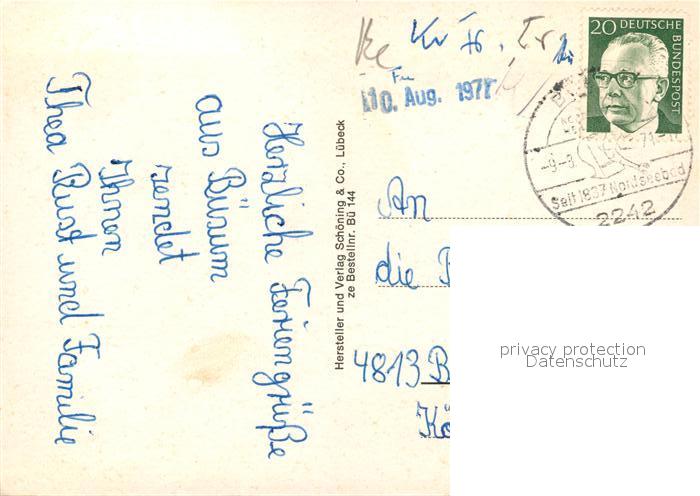 Herzliche Feriengrüße
aus Büsum
sendet
Ihnen
Thea Rust und Familie
Hersteller und Verlag Schöning & Co., Lübeck
ze Bestellnr. Bü 144
10. Aug. 1971
20 DEUTSCHE
BUNDESPOST
-9.-8.71-
Seit 1837 Nordseebad
2242
An
die
4813 B
Kö
privacy protection
Datenschutz